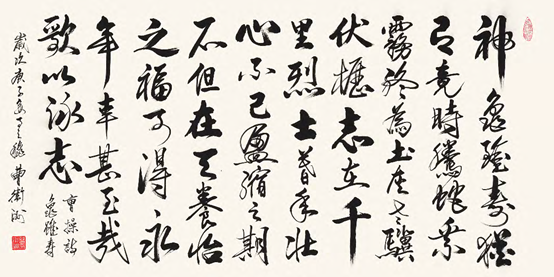 神龜雖壽猶
有竟時騰蛇乘
霧終為土灰老驥
伏櫪志在千
里烈士暮年壯
心不已盈縮之期
不但在天養怡
之福可得永
年幸甚至哉
歌以詠志
曹操詩
龜雖壽
歲次庚子